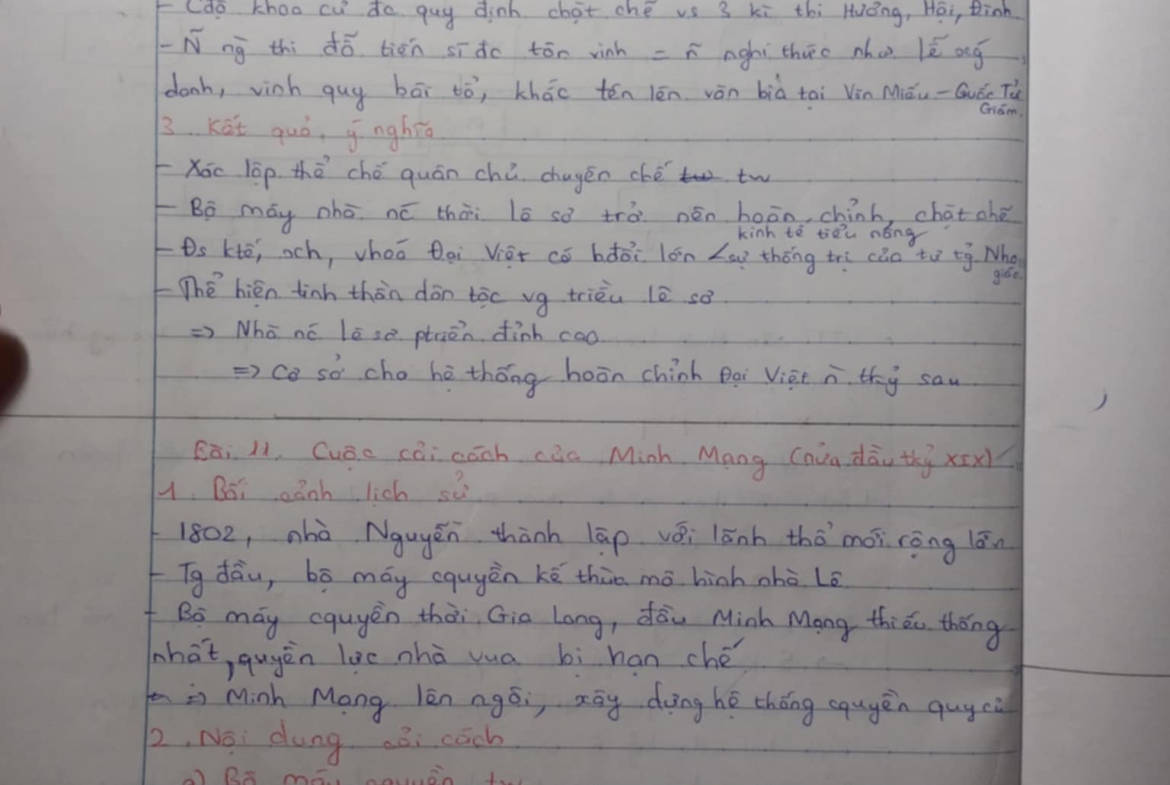 - Cđộ khoa cử đc quy định chặt chẽ vs 3 kì thi Hương, Hội, Đình
- Ñ ng thi đỗ tiến sĩ đc tôn vinh = ñ nghi thức như lễ xg
danh, vinh quy bái tổ, khắc tên lên văn bia tại Văn Miếu - Quốc Tử
Giám.
3. Kết quả, ý nghĩa
- Xác lập thể chế quân chủ chuyên chế tw
- Bộ máy nhà nc thời lê sơ trở nên hoàn chỉnh, chặt chẽ
kinh tế tiểu nông
- Đs ktế, xh, vhoá Đại Việt có bđổi lớn < sự thống trị của tư tg Nho
giáo.
- Thể hiện tinh thần dân tộc vg triều lê sơ
=> Nhà nc lê sơ ptriển đỉnh cao
=> Cơ sở cho hệ thống hoàn chỉnh Đại Việt ñ thkỷ sau
Bài 11. Cuộc cải cách của Minh Mạng (nửa đầu thkỷ XIX)
1. Bối cảnh lịch sử
- 1802, nhà Nguyễn thành lập với lãnh thổ mới rộng lớn
- Tg đầu, bộ máy cquyền kế thừa mô hình nhà Lê
- Bộ máy cquyền thời Gia Long, đầu Minh Mạng thiếu thống
nhất, quyền lực nhà vua bị hạn chế
=> Minh Mạng lên ngôi, xây dựng hệ thống cquyền quy củ
2. Nội dung cải cách
a) Bộ máy cquyền tw